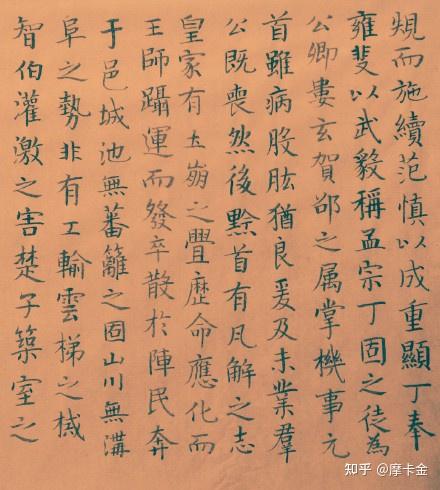 規而施續范慎以成重顯丁奉
雍斐以武毅稱孟宗丁固之徒為
公卿婁玄賀邵之属掌機事元
首雖病股肱猶良爰及末業羣
公既喪然後黔首有瓦解之志
皇家有圡崩之舋歷命應化而
王師躡運而發卒散於陣民奔
于邑城池無蕃籬之固山川無溝
阜之勢非有工輸雲梯之械
智伯灌激之害楚子築室之
知乎 @摩卡金